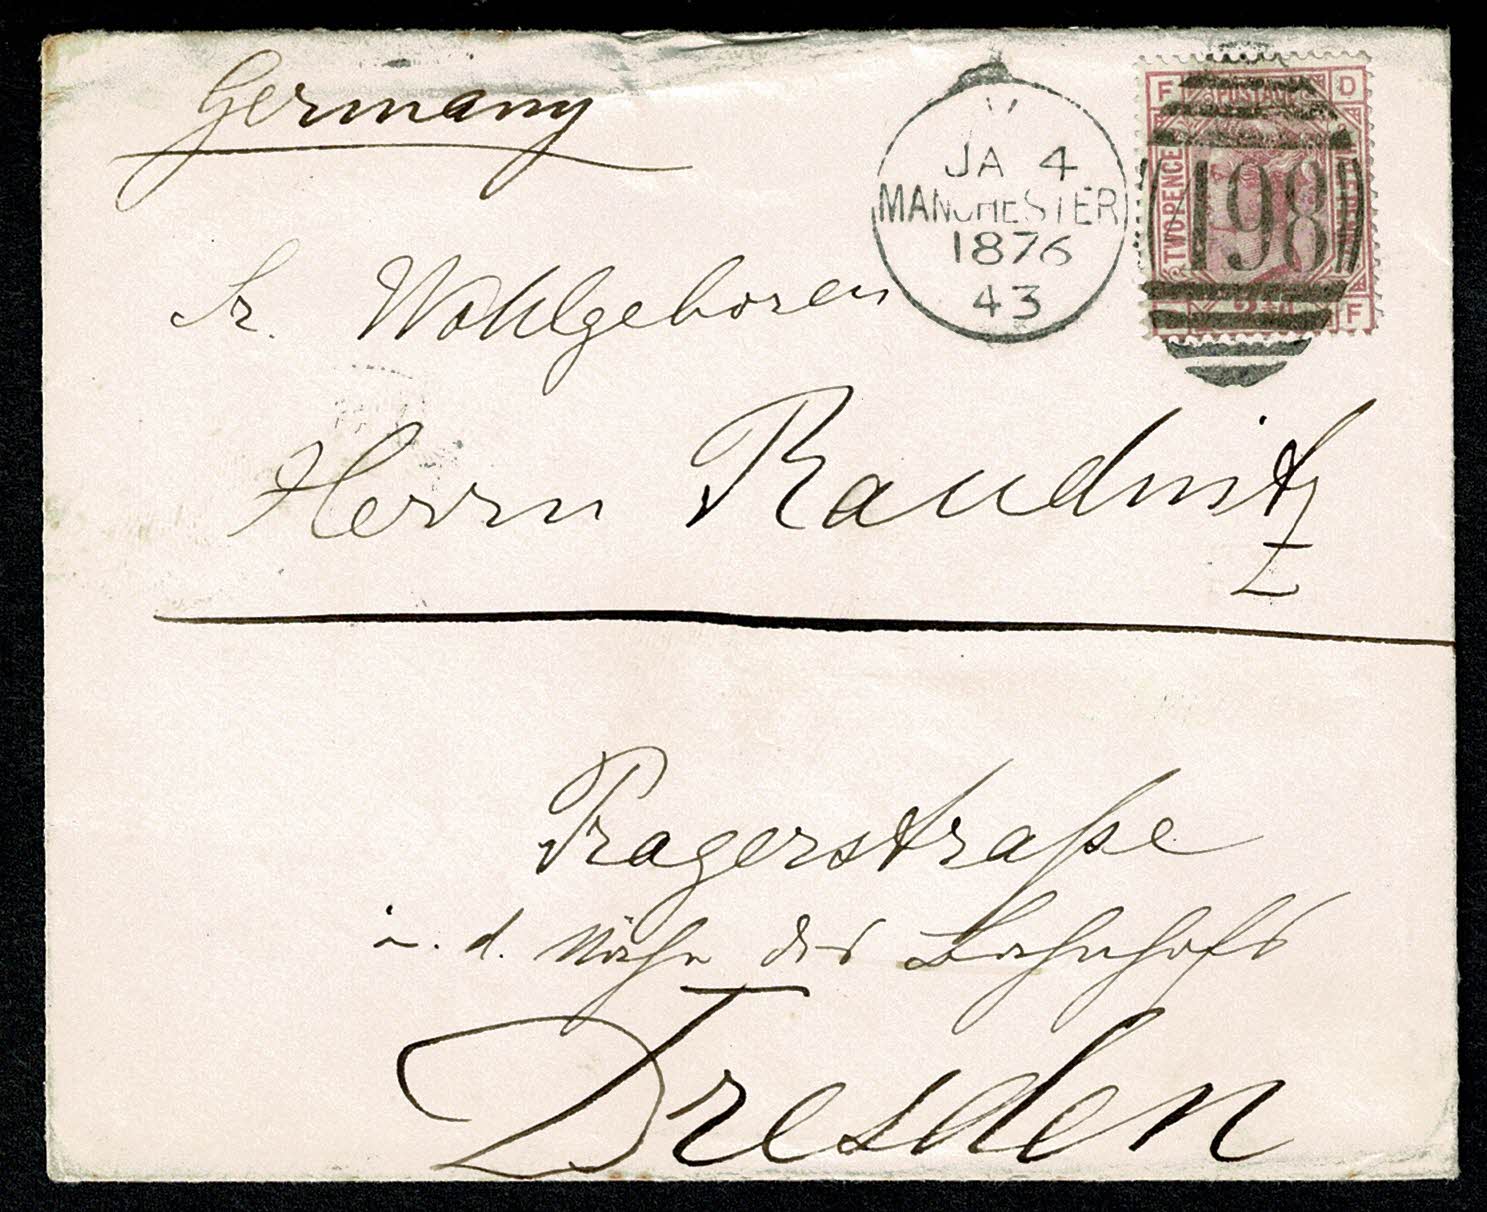 Germany
Sr. Wohlgeboren
Herrn Raudnitz
Pragerstraße
i. d. Nähe des Bahnhofs
Dresden
JA 4
MANCHESTER
1876
43
F POSTAGE D
TWOPENCE
498
F